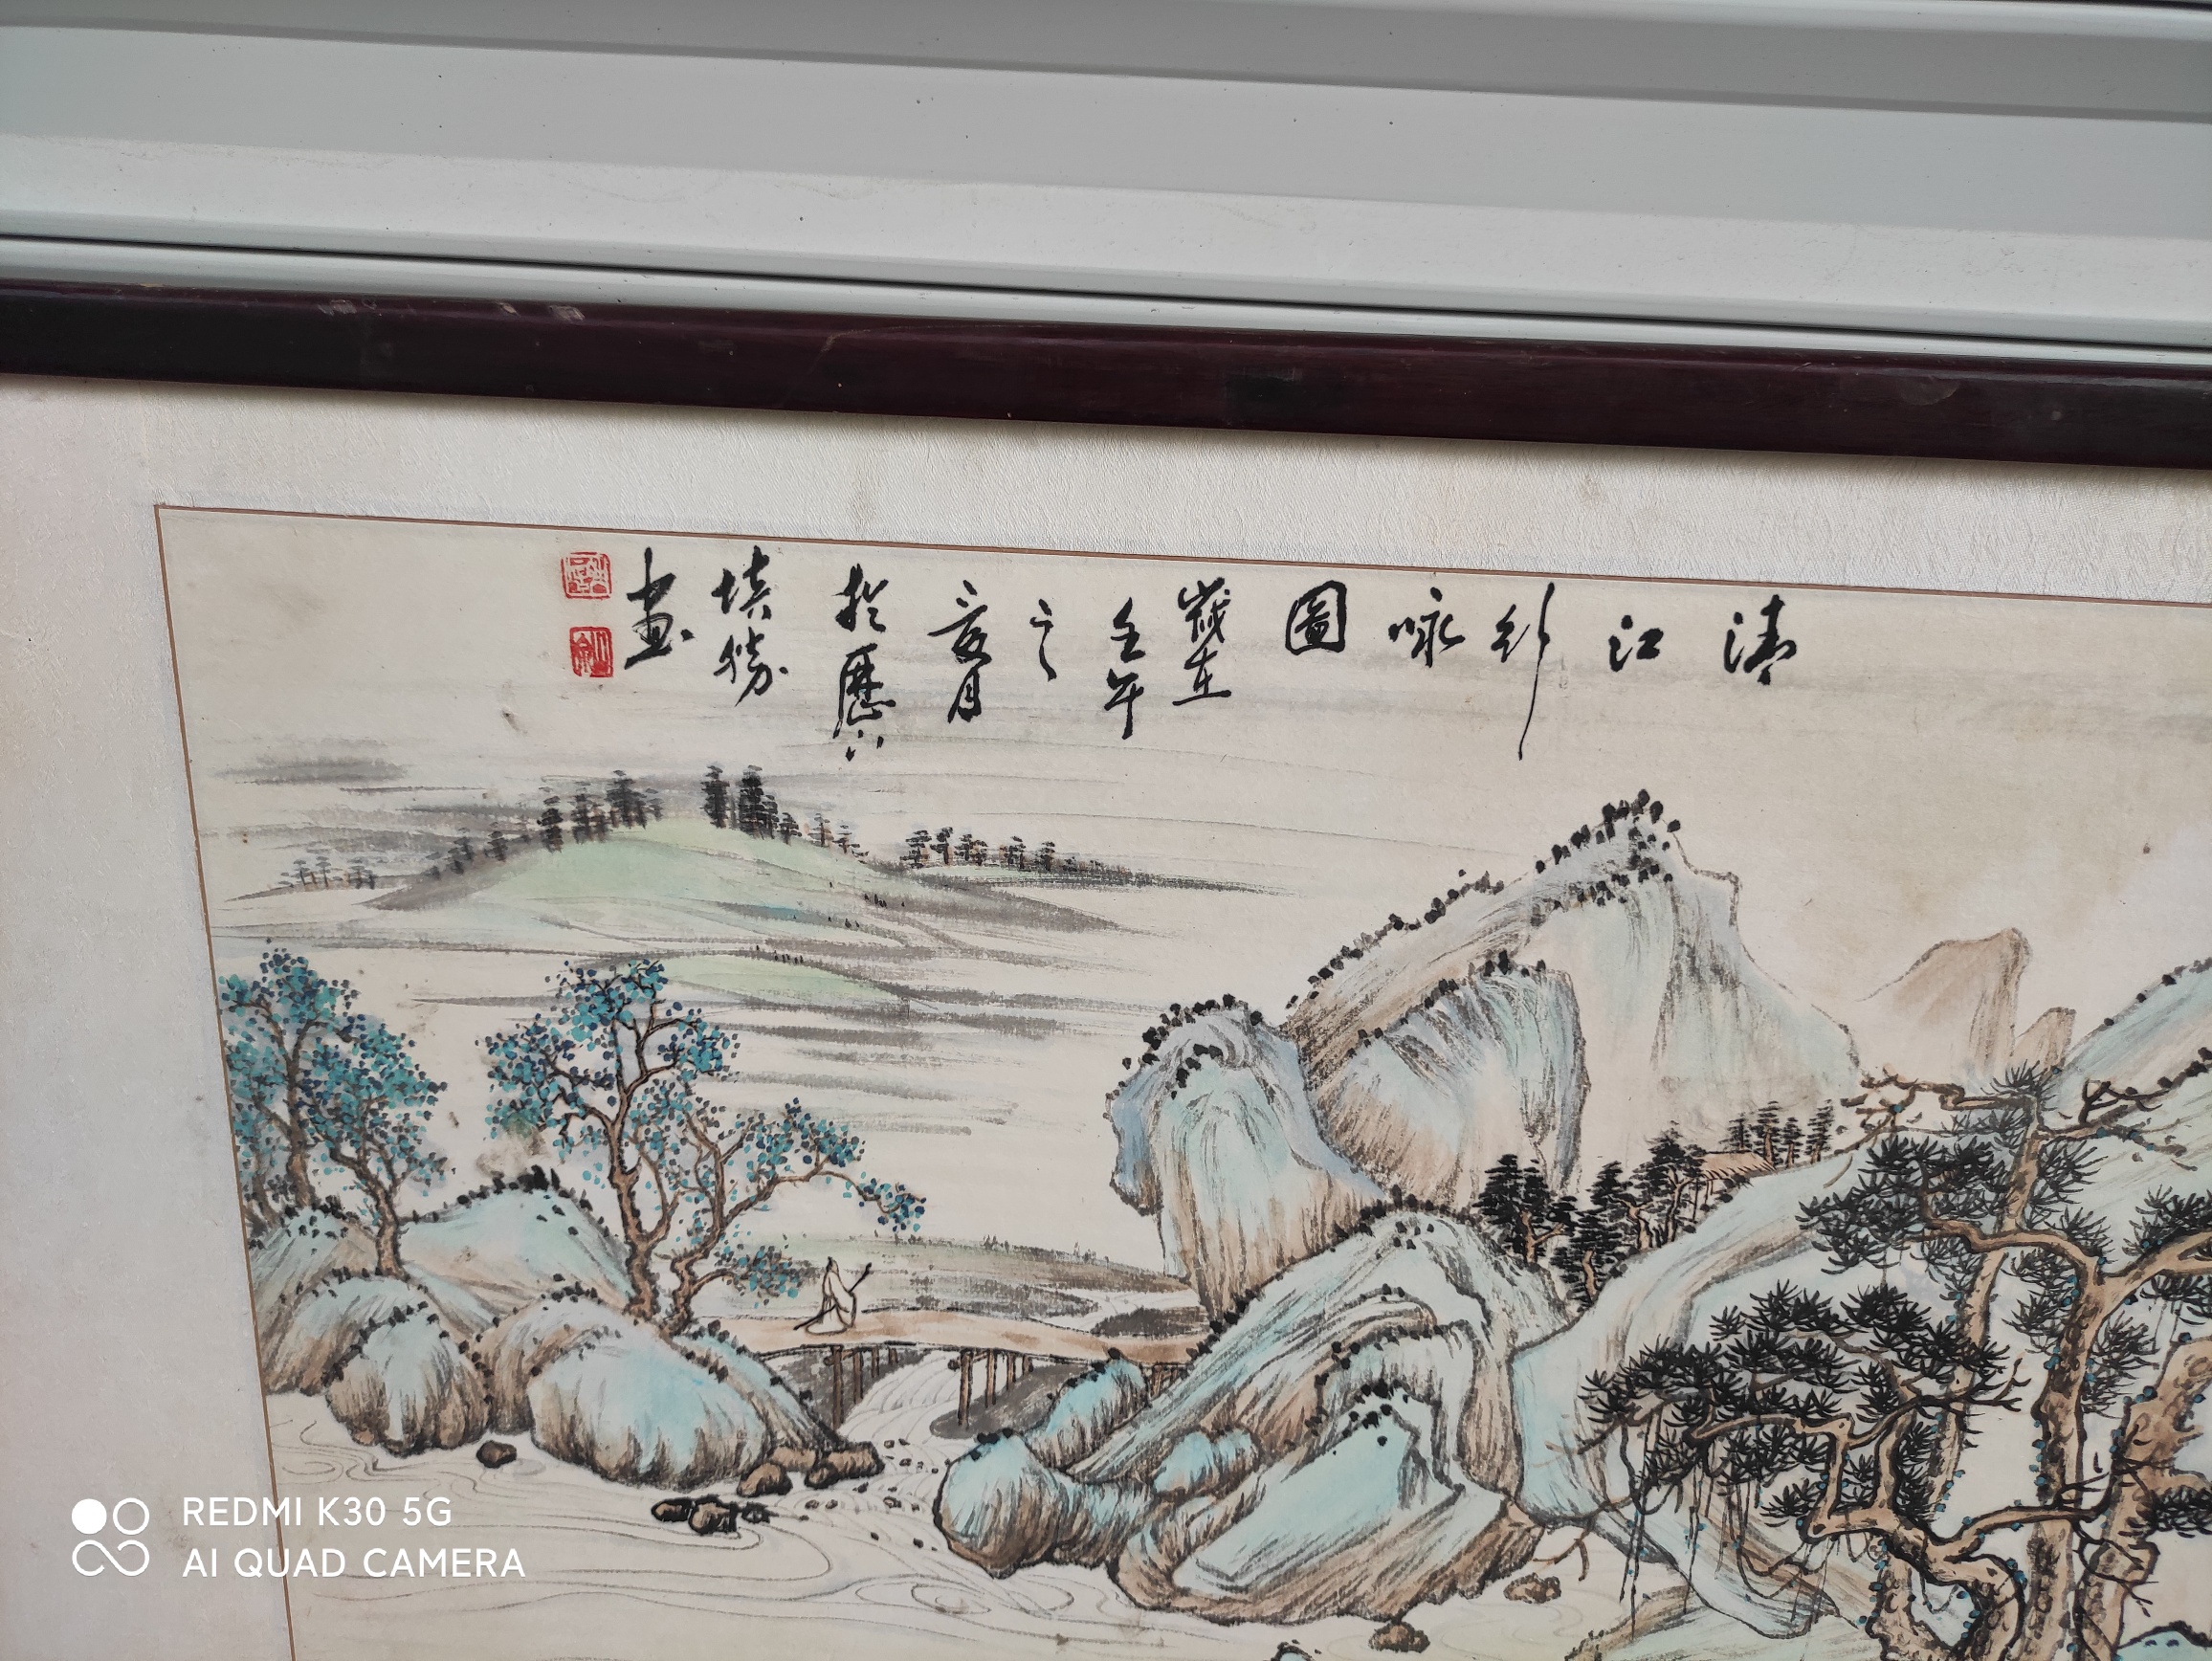 清
江
行
咏
圖
歲在
壬午
之
夏月
於歷下
培勝
画
REDMI K30 5G
AI QUAD CAMERA